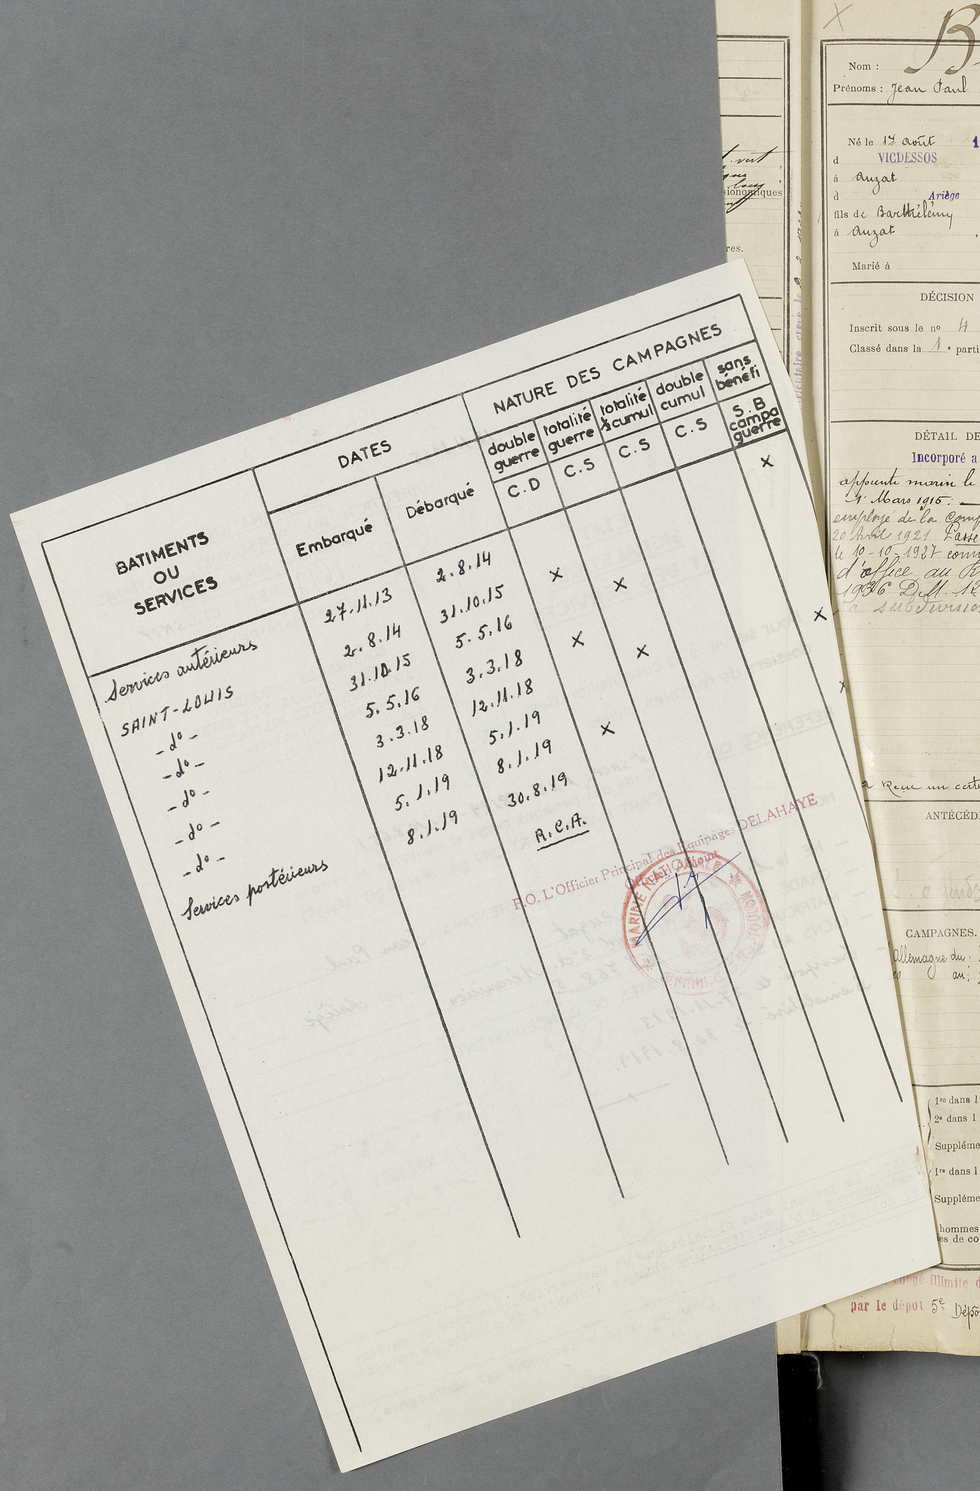 NATURE DES CAMPAGNES
DATES
double guerre
totalité guerre
totalité ½ cumul
double cumul
sans bénéfi
C.D
C.S
C.S
C.S
S.B campa guerre
BATIMENTS
OU
SERVICES
Embarqué
Débarqué
Services antérieurs 27.11.13 2.8.14 x
SAINT-LOUIS 2.8.14 31.10.15 x
-d°- 31.10.15 5.5.16 x
-d°- 5.5.16 3.3.18 x
-d°- 3.3.18 12.11.18 x
-d°- 12.11.18 5.1.19 x
-d°- 5.1.19 8.1.19 x
Services postérieurs 8.1.19 30.8.19 x
R.C.A.
P.O. L'Officier Principal des Equipages DELAHAYE
Officier Adjoint
MARINE NATIONALE
Nom : B
Prénoms : Jean Paul
Né le 17 août 1
d VICDESSOS
à Auzat
d Ariège
fils de Barthélémy
à Auzat
Marié à
DÉCISION
Inscrit sous le n° 4
Classé dans la 1e parti
DÉTAIL DE
Incorporé a
apprenti marin le
1er Mars 1915:
employé de la Comp
20 Avril 1921 Passé
le 10-10-1927 comm
d'office au R
1936 D.M. 12
la subdivision
a Reçu un cert
ANTÉCÉDE
CAMPAGNES.
Allemagne du:
au:
1re dans l
2e dans l
Supplémen
1re dans l
Supplémen
hommes
es de co
illimité d
par le dépôt 5e Dépô
vert
sionomiques
res.